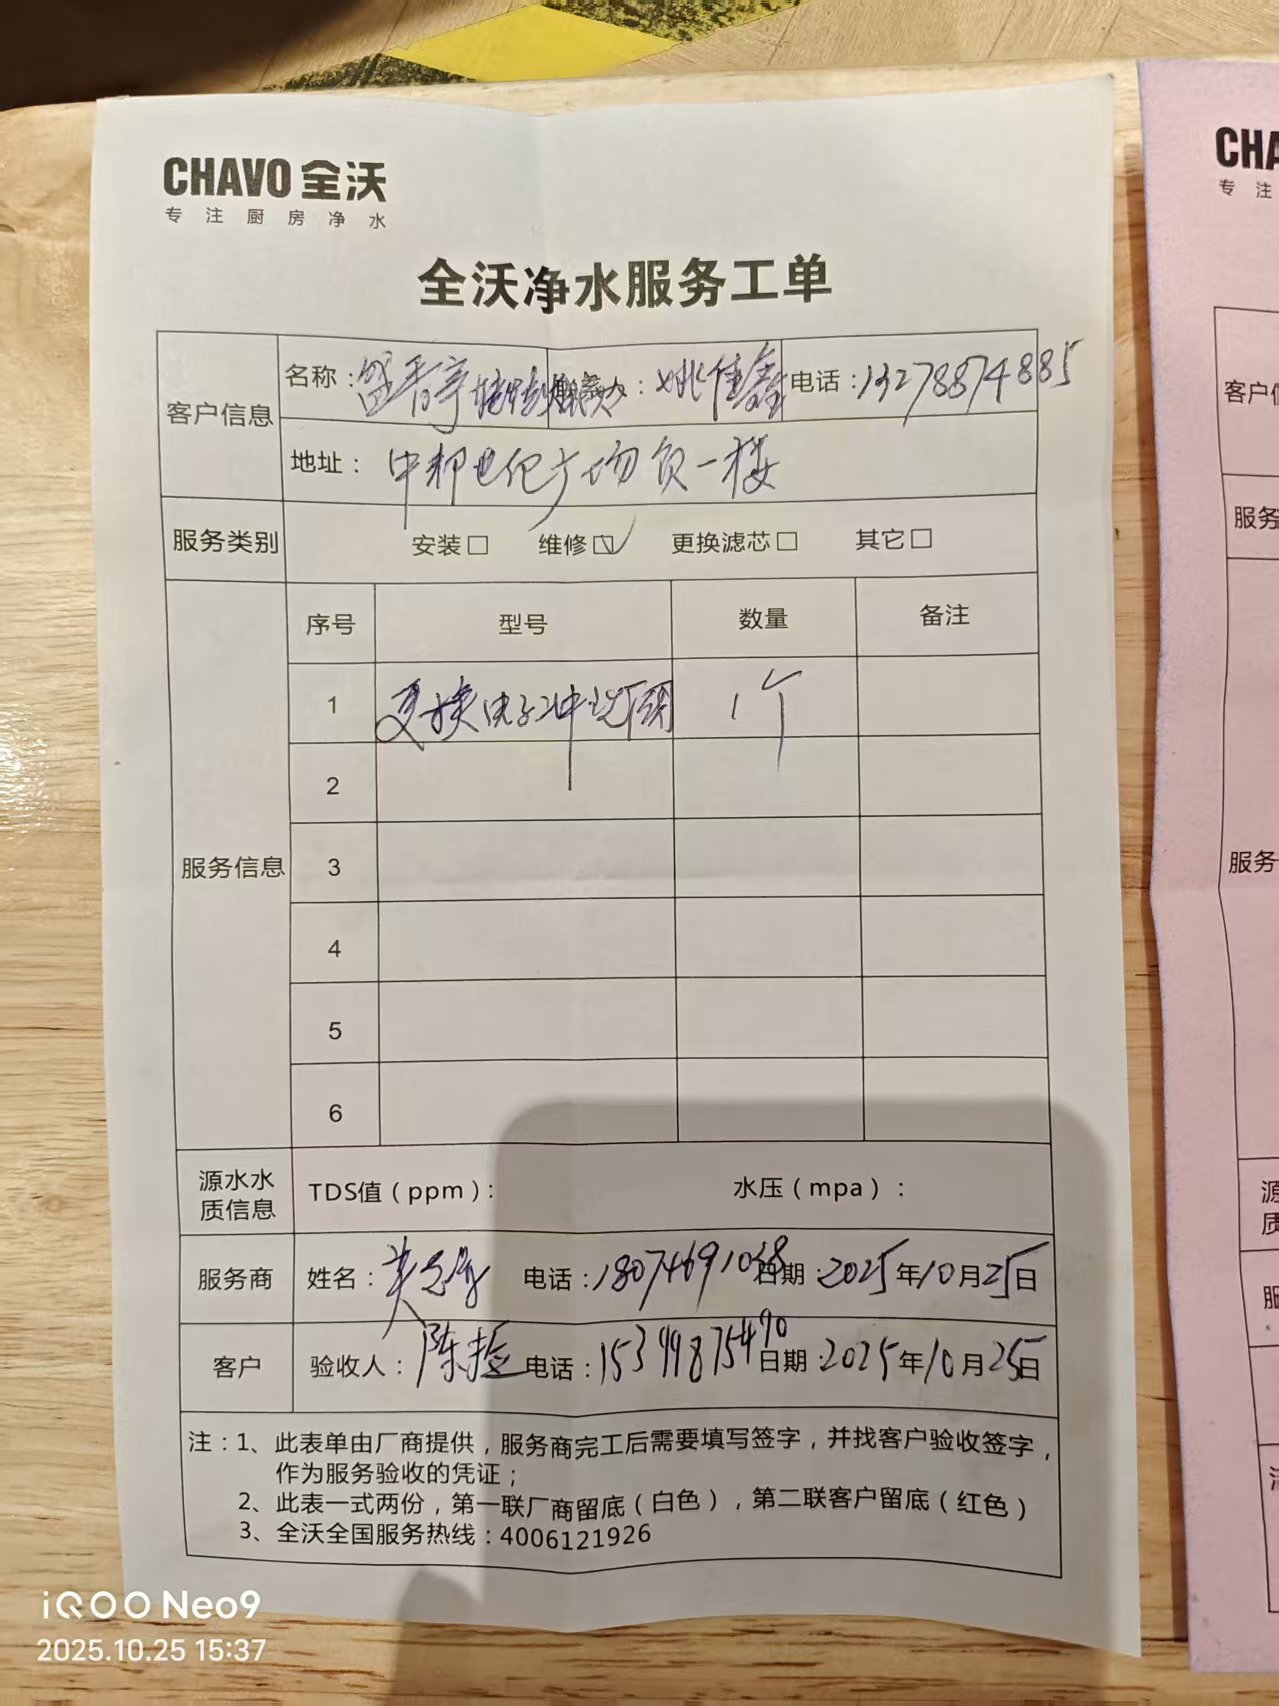 CHAVO 全沃
专注厨房净水
全沃净水服务工单
客户信息
名称：盛香亭 ：姚佳鑫 电话：13278874885
地址：中邦世纪广场负一楼
服务类别 安装□ 维修☑ 更换滤芯□ 其它□
服务信息
序号 型号 数量 备注
1 更换电子冲洗阀 1个
2
3
4
5
6
源水水质信息 TDS值（ppm）： 水压（mpa）：
服务商 姓名： 电话： 日期：2025年10月25日
客户 验收人：陈 电话：15399875470 日期：2025年10月25日
注：1、此表单由厂商提供，服务商完工后需要填写签字，并找客户验收签字，
作为服务验收的凭证；
2、此表一式两份，第一联厂商留底（白色），第二联客户留底（红色）
3、全沃全国服务热线：4006121926
CHA
专 注
客户信
服务
服务
iQOO Neo9
2025.10.25 15:37